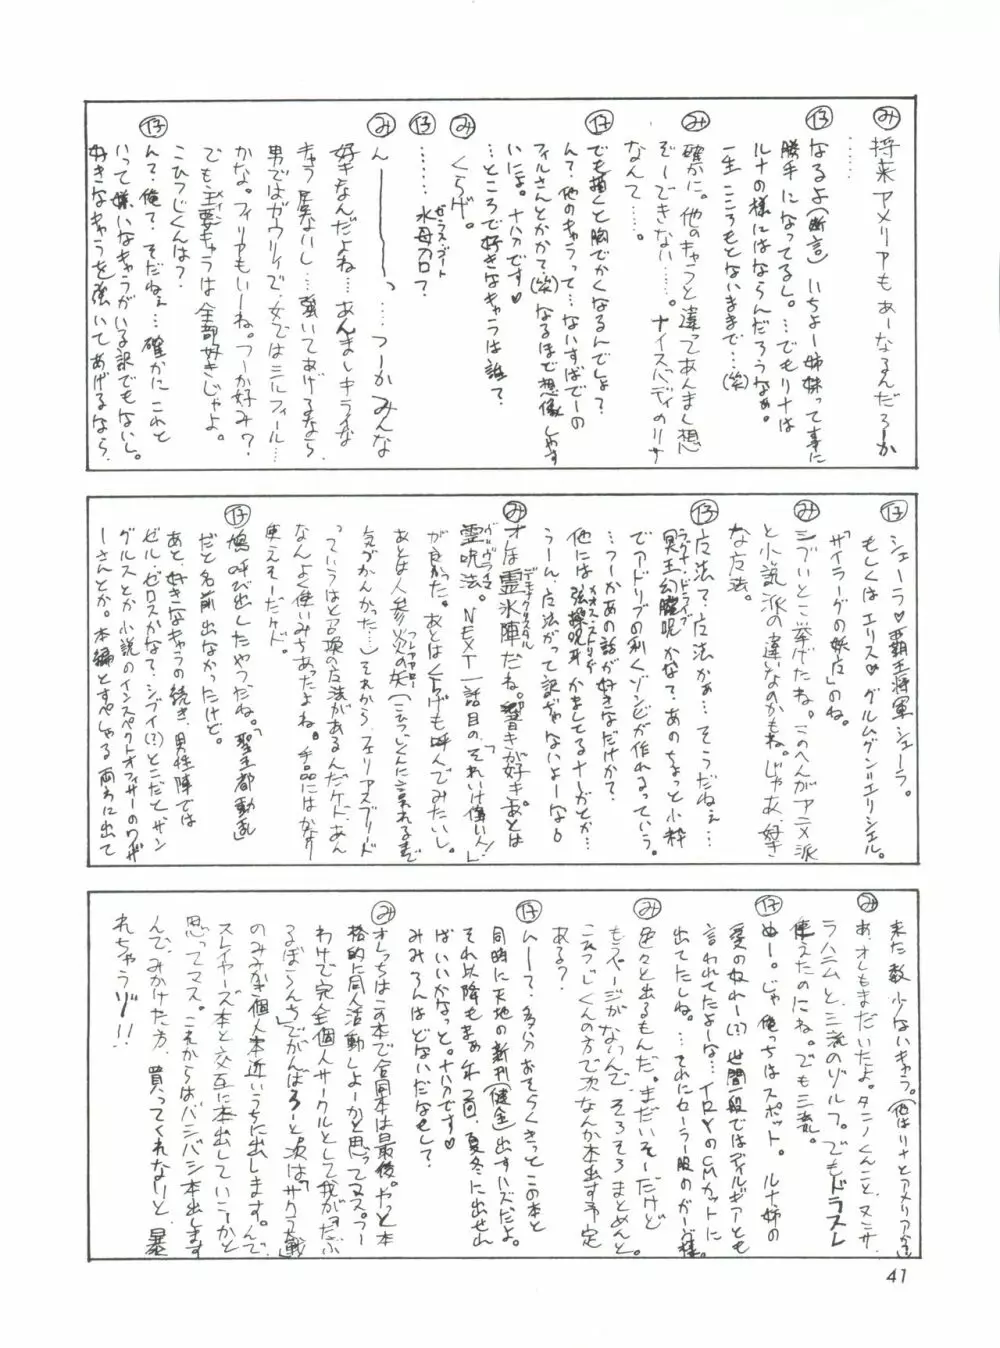 み 将来アメリアもあーなるんだろーか
……
仔 なるよ(断言)いちょー姉妹って事に
勝手になってるし。…でもリナは
ルナの様にはならんだろうなぁ。
一生こころもとないままで…(笑)
み 確かに。他のキャラと違ってあんまし想
ぞーできない……。ナイスバディのリナ
なんて……。
仔 でも描くと胸でかくなるんでしょ?
ん?他のキャラって…ないすばでーの
フィルさんとかかて?(笑)なるほど想像しやす
いにょ。十八分です♡
…ところで好きなキャラは誰?
み くらげ。
仔 ……水母フロ?
み んー―――っ…つーかみんな
好きなんだよね…あんましキライな
キャラ居ないし…強いてあげるなら
男ではガウリィで、女ではミルフィール…
かな。フィリアもいーね。フーか好み?
でも主要キャラは全部好きじゃよ。
こひつじくんは?
仔 んて?俺?そだねぇ…確かにこれと
いって嫌いなキャラがいる訳でもないし。
好きなキャラを強いてあげるなら、
仔 シェーラ♡覇王将軍シェーラ。
もしくはエリス♡グルムグン=エリシエル。
「サイラーグの妖女」のね。
み シブいとこ挙げたね。このへんがアニメ派
と小説派の違いなのかもね。じゃあ、好き
な方法。
仔 方法?方法かぁ…そうだねぇ…
冥王幻朧呪かな?あのちょっと小粋
でアドリブの利くゾンビが作れまっていう。
…つーかあの話が好きなだけか?
他には強操呪耳かましてるナーガとか…
うーん、方法がって訳じゃないよーな。
み オレは霊氷陣だね。響きが好き。あとは
霊呪法。NEXT一話目の「それいけ偉い人!」
が良かった。あとはくらげも呼んでみたいし。
あとは人参炎の矢(こひつじくんに言われるまで
気づかんかった…)それからフェリアスブリード
っていうはと召喚の方法があるんだケド、あん
なんよく使いみちあったよね。手品にはかなり
使えそーだケド。
仔 鳩呼び出したやつだね。「聖王都動乱」
だと名前出なかったけど。
あと、好きなキャラの続き、男性陣では
ゼル・ゼロスかな?シブイ(?)とこだとザン
グルスとか小説のインスペクトオフィサーのワイザ
ーさんとか。本編とすぺしゃる両方に出て
来た数少ないキャラ。(他はリナとアメリアかな)
み あ、オレもまだいたよ。タニノくんこと、ヌニサ
ラハニムと、三流のゾルフ。でもドラスレ
使えたのにね。でも三流。
仔 ぬー。じゃ俺っちはスポット。ルナ姉の
愛の奴れー(?)世間一般ではディルギアとも
言われてたよーな…イロモのCMカットに
出てたしね。…それにセーラー服のガーブ様。
み 色々と出るもんだ。まだいそーだけど
もうページがなぃんで、そろそろまとめんと。
こひつじくんの方で次なんか本出す予定
ある?
仔 んーて、多分おそらくきっとこの本と
同時に天地の新刊(健全)出すハズだよ。
それ以降もまぁ年2回、夏冬に出せれ
ばいいかなっと。十八分です♡
みみろんはどないだなもして?
み オレっちはこの本で合同本は最後。やっと本
格的に同人活動しよーかと思ってマス。フー
わけで完全個人サークルとして我が「だぶ
るぼらんち」でがんばろーと次は「サクラ大戦」
のみみかき個人本近いうちに出します。んで、
スレイヤーズ本と交互に本出していこーかと
思ってマス。これからはバシバシ本出します
んで、みかけた方、買ってくれないと、暴
れちゃうゾ!!
41